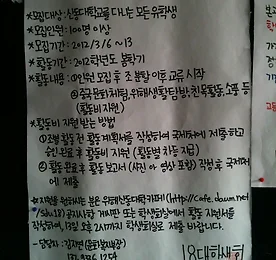 *모집대상: 산동대학교를 다니는 모든 유학생
*모집인원: 100명 이상
*모집기간: 2012/3/6 ~ 13
*활동기간: 2012학년도 봄학기
*활동내용: ①인원 모집 후 조 분할 이후 교류 시작
②중국문화체험, 위해생활탐방, 친목활동, 소풍 등
(활동비 지원)
*활동비 지원 받는 방법
①조별 활동 전 활동 계획서를 작성하여 국제처에 제출하고
승인 완료 후 활동비 지원 (활동별 차등 지급)
②활동 완료 후 활동 보고서 (사진 and 영상 포함) 작성 후 국제처
에 제출
☆지원을 원하시는 분은 위해산동대학카페 (http://cafe.daum.net
/sdu18) 공지사항 게시판 또는 학생회실에서 활동 지원서를
작성하여, 13일 오후 2시까지 학생회실로 제출 바랍니다.
- 담당자: 김지현 (문화체육부장)
18대 학생회